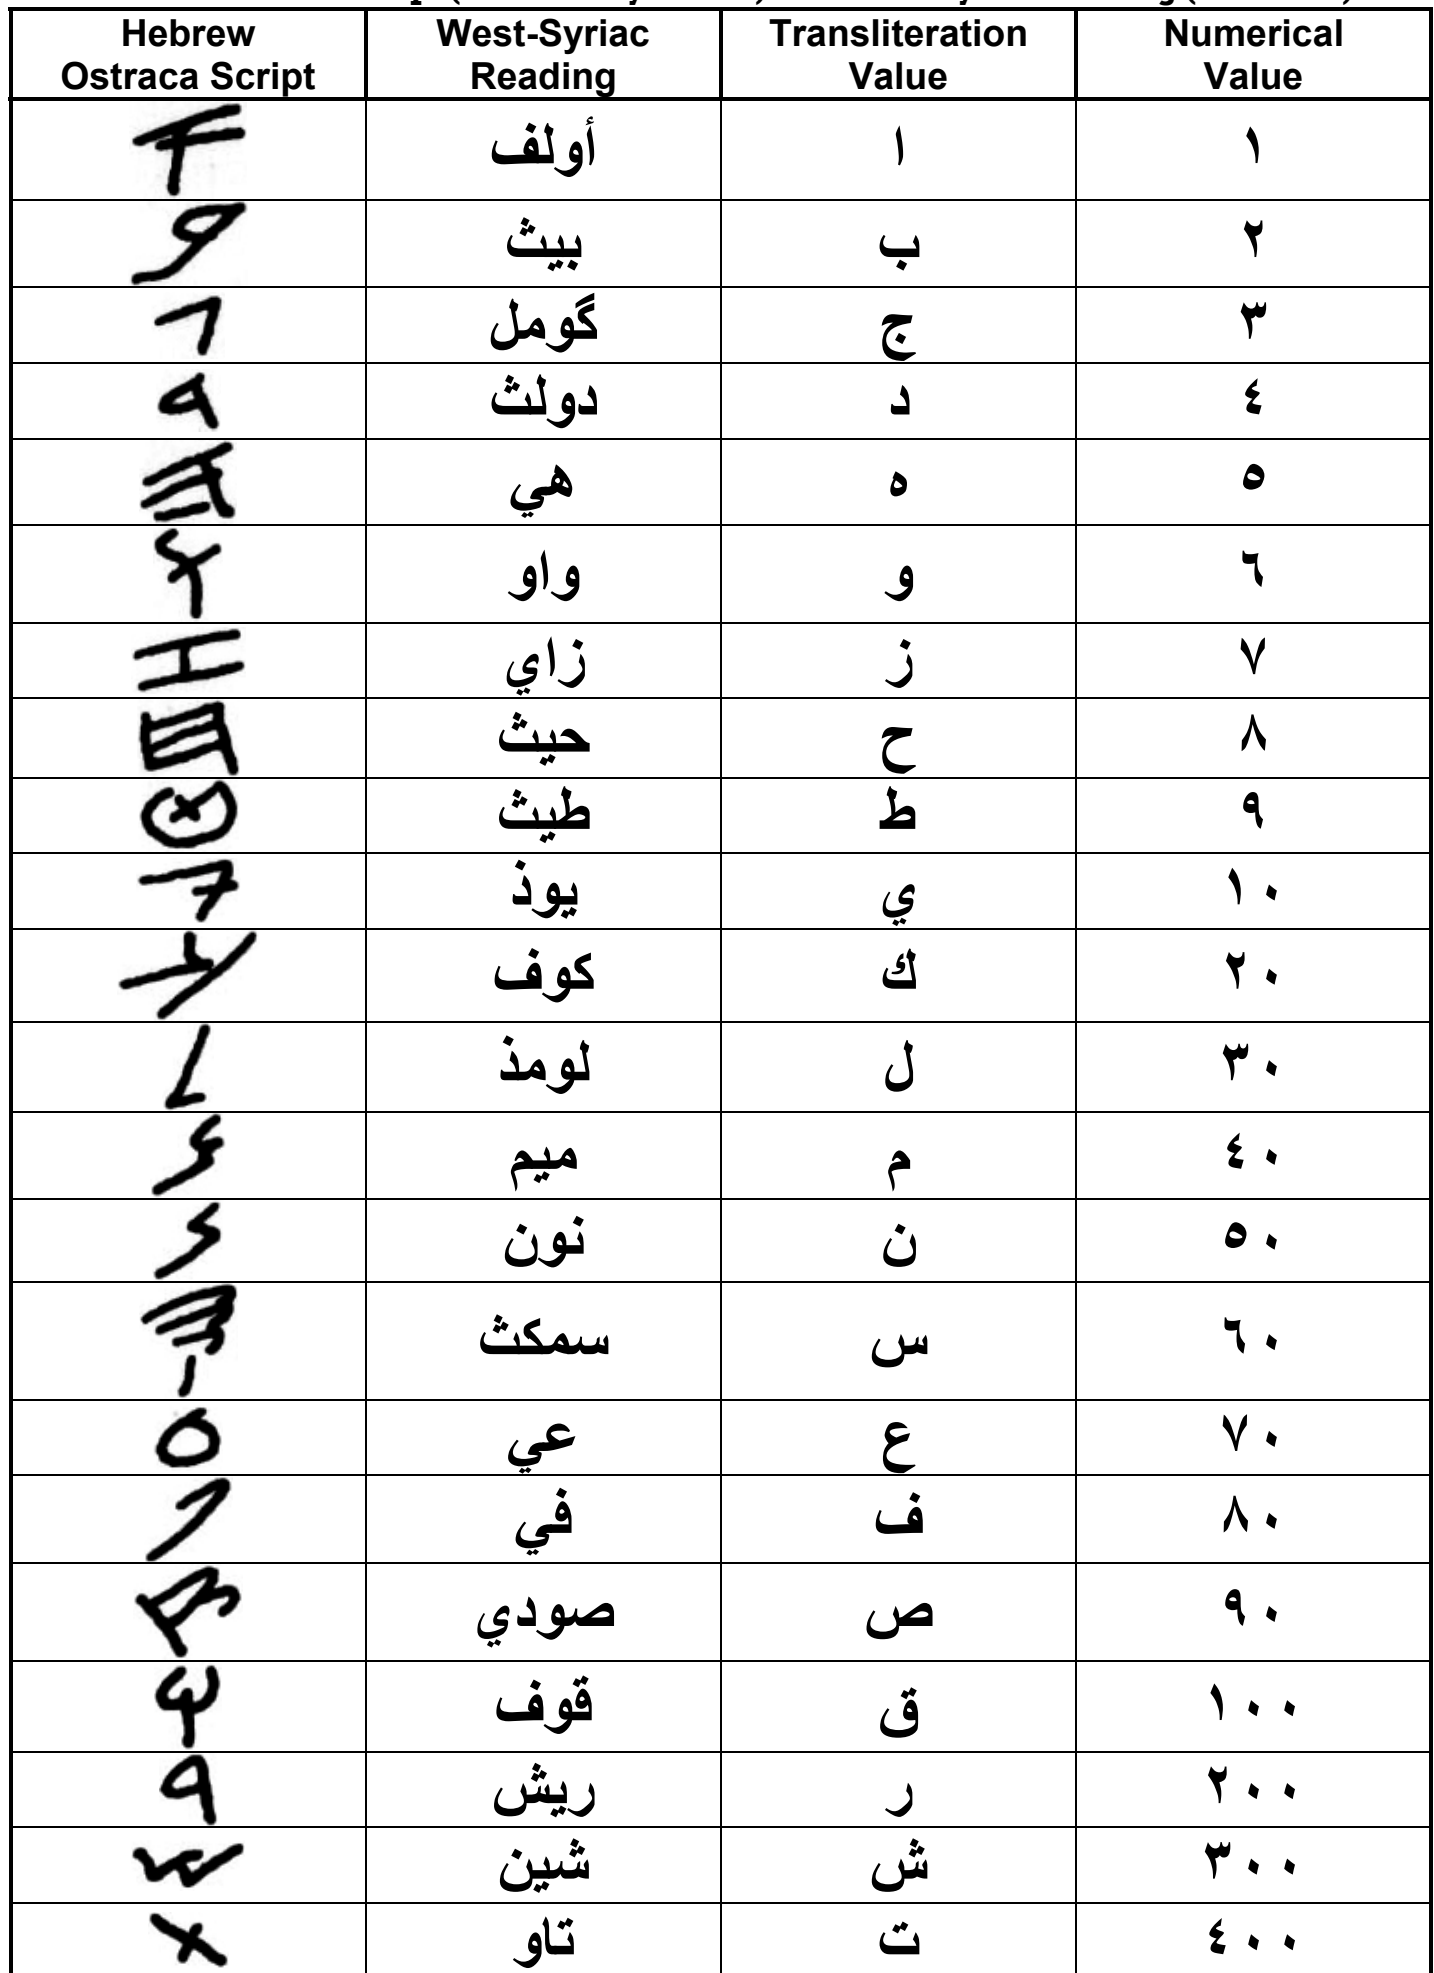 Hebrew Ostraca Script West-Syriac Reading Transliteration Value Numerical Value
𐤀 أولف ا ١
𐤁 بيث ب ٢
𐤂 گومل ج ٣
𐤃 دولث د ٤
𐤄 هي ه ٥
𐤅 واو و ٦
𐤆 زاي ز ٧
𐤇 حيث ح ٨
𐤈 طيث ط ٩
𐤉 يوذ ي ١٠
𐤊 كوف ك ٢٠
𐤋 لومذ ل ٣٠
𐤌 ميم م ٤٠
𐤍 نون ن ٥٠
𐤎 سمكث س ٦٠
𐤏 عي ع ٧٠
𐤐 في ف ٨٠
𐤑 صودي ص ٩٠
𐤒 قوف ق ١٠٠
𐤓 ريش ر ٢٠٠
𐤔 شين ش ٣٠٠
𐤕 تاو ت ٤٠٠